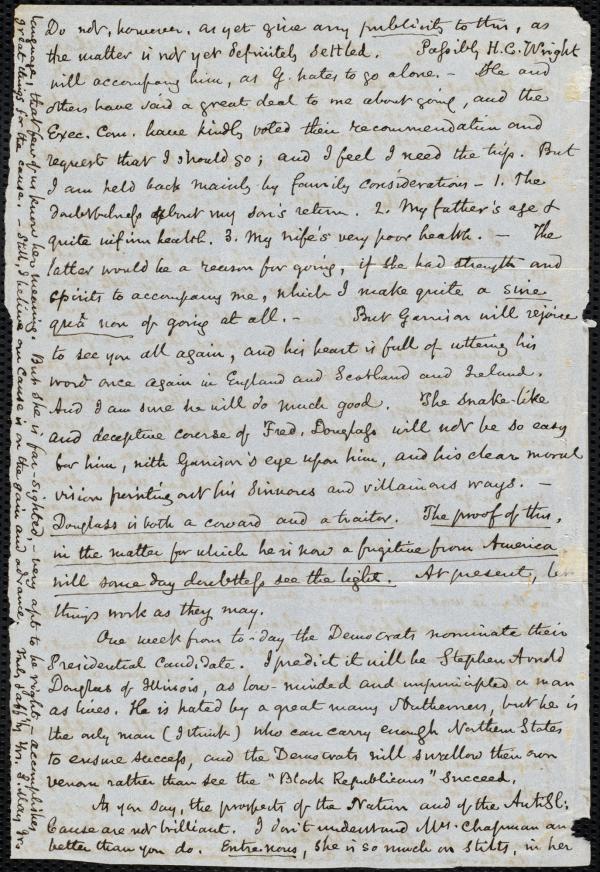 Do not, however, as yet give any publicity to this, as
the matter is not yet definitely settled. Possibly H. C. Wright
will accompany him, as G. hates to go alone. - He and
others have said a great deal to me about going, and the
Exec. Com. have kindly voted their recommendation and
request that I should go; and I feel I need the trip. But
I am held back mainly by family considerations - 1. The
doubtfulness about my son's return. 2. My father's age &
quite infirm health. 3. My wife's very poor health. - The
latter would be a reason for going, if she had strength and
spirits to accompany me, which I make quite a sine
quâ non of going at all. - But Garrison will rejoice
to see you all again, and his heart is full of uttering his
word once again in England and Scotland and Ireland.
And I am sure he will do much good. The snake-like
and deceptive course of Fred. Douglass will not be so easy
for him, with Garrison's eye upon him, and his clear moral
vision pointing out his sinuous and villainous ways. -
Douglass is both a coward and a traitor. The proof of this,
in the matter for which he is now a fugitive from America
will some day doubtless see the light. At present, let
things work as they may.
One week from to-day the Democrats nominate their
Presidential Candidate. I predict it will be Stephen Arnold
Douglas of Illinois, as low-minded and unprincipled a man
as lives. He is hated by a great many Southerners, but he is
the only man (I think) who can carry enough Northern States
to ensure success, and the Democrats will swallow their own
venom rather than see the "Black Republicans" succeed.
As you say, the prospects of the Nation and of the AntiSl:
Cause are not brilliant. I don't understand Mrs. Chapman any
better than you do. Entre nous, she is so much on stilts, in her
language, that few of us know her meaning. But she is far-sighted - very apt to be right - accomplishes
great things for the cause. Still, I believe our cause is on the gain and advance. Yrs. S. May Jr.